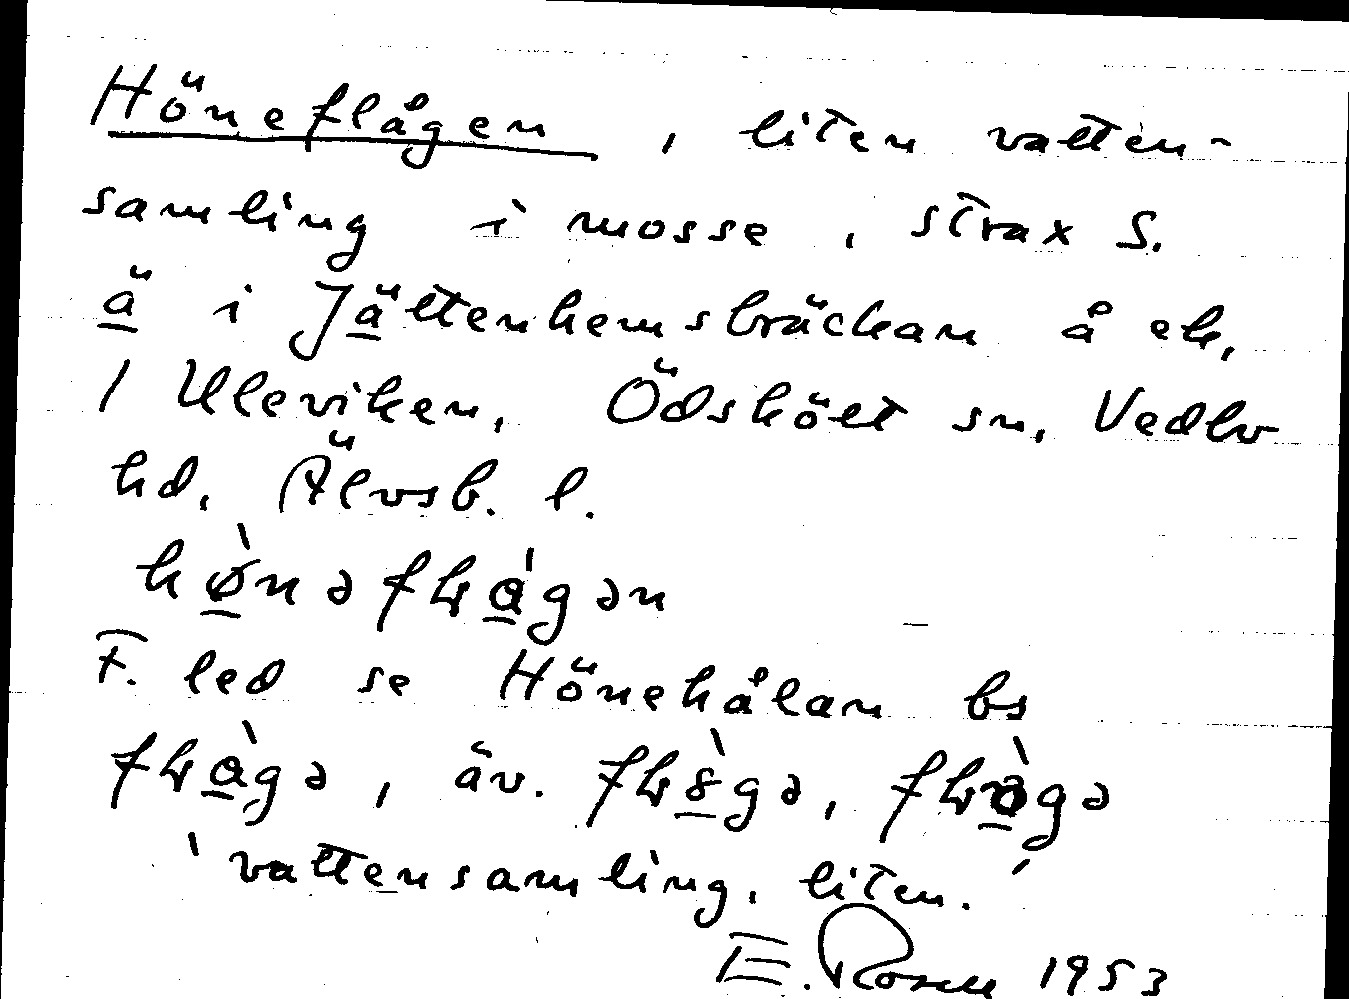 Höneflågen, liten vatten-
samling i mosse, strax S.
ä i Jättenhemsbräckan å ek.
1 Uleviken, Ödskölt sn, Vedbo
hd, Älvsb. l.
hø̀nəfɫɑ̀gən
F. led se Hönehålan bs
fɫɑ̀gə, äv. fɫ gə, fɫ gə
'vattensamling, liten.'
E. Rosell 1953